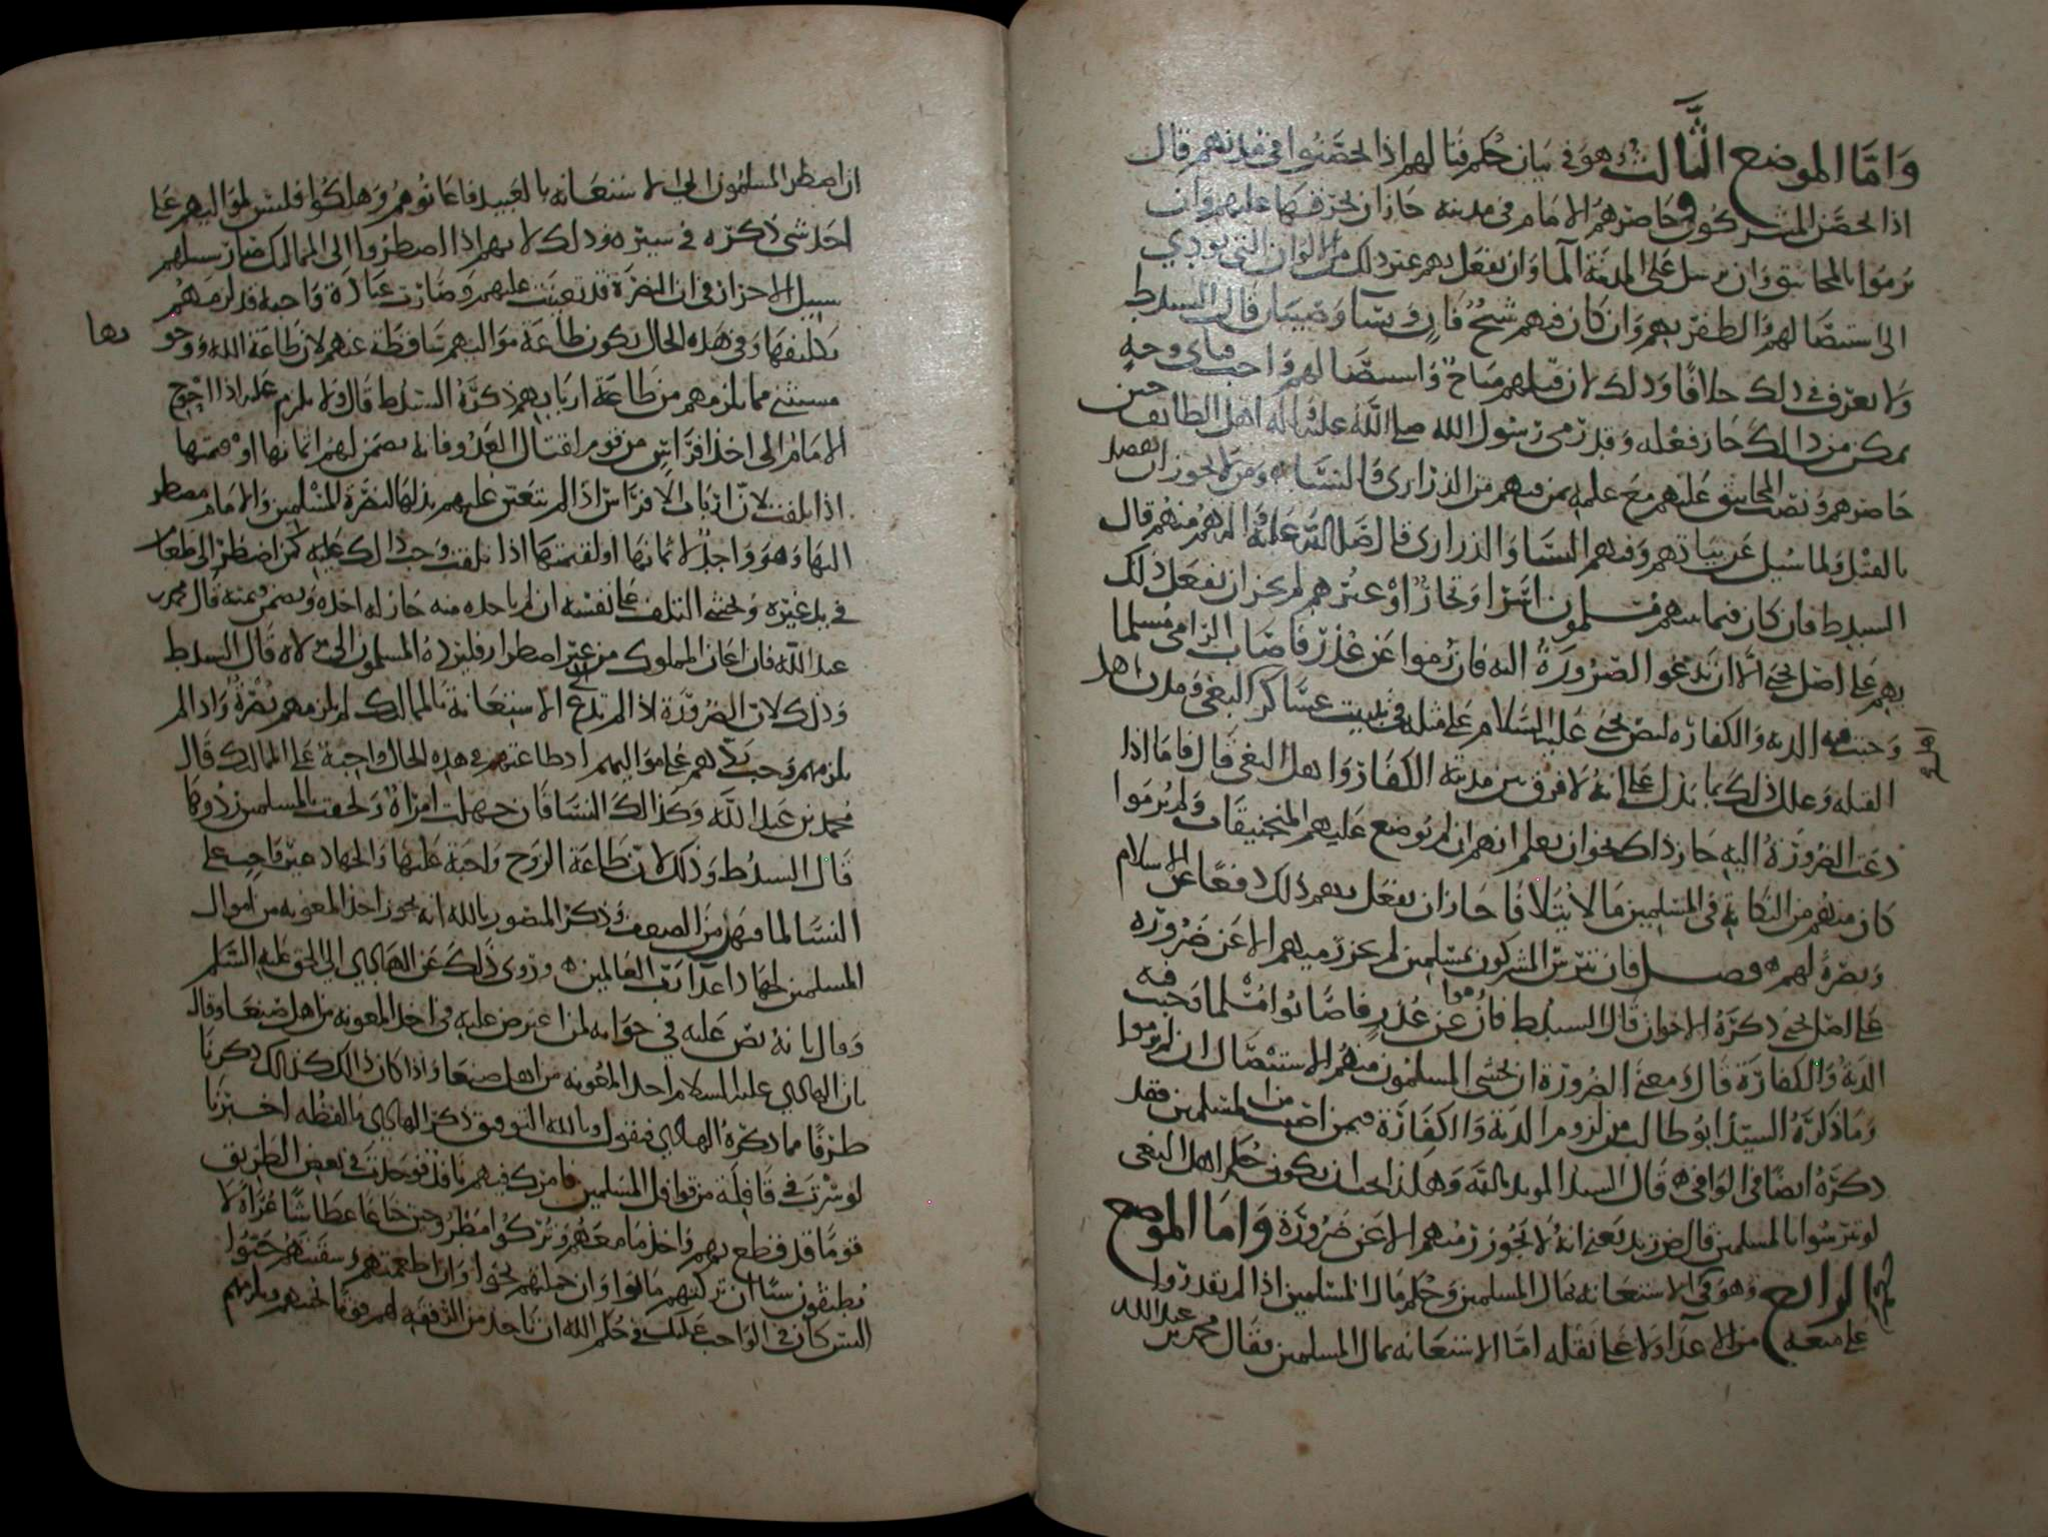 واما الموضع الثالث وهو في بيان حكم قتالهم اذا تحصنوا في مدنهم قال
اذا تحصن المشركون وحاصرهم الامام في مدينة جاز ان يحرقها عليهم وان
يرموا بالمجانيق وان يرسل على المدينة الما وان يفعل بهم غير ذلك من الوان التي تودي
الى استيصالهم والظفر بهم وان كان فيهم شيخ فان ونسا وصبيان قال السيد ط
ولا نعرف في ذلك خلافا وذلك لان قتلهم مباح واستيصالهم واجب فباي وجه
يمكن من ذلك جاز فعله وقد رمى رسول الله صلى الله عليه واله اهل الطائف حين
حاصرهم ونصب المجانيق عليهم مع علمه بمن فيهم من الذراري والنسا ومن لا يجوز ان يقصد
بالقتل ولما سئل عن بياتهم وفيهم النسا والذراري قال صلى الله عليه واله هم منهم قال
السيد ط فان كان فيما بينهم مسلمون اسرا وتجار او غيرهم لم يجز ان يفعل ذلك
بهم على اصل يحيى الا ان تدعو الضرورة اليه فان رموا عن عذر فاصاب الرامي مسلما
وجبت فيه الدية والكفارة لنص يحيى عليه السلام على مثله في تبييت عساكر البغي ومدن اهل
القبلة وعلل ذلك بما يدل على انه لا فرق بين مدينة الكفار واهل البغي قال فاما اذا
دعت الضرورة اليه جاز ذلك نحو ان يعلم انهم ان لم يوضع عليهم المنجنيقات ولم يرموا
كان منهم من النكاية في المسلمين ما لا يتلافا جاز ان يفعل بهم ذلك دفعا عن الاسلام
ونصرة لهم فصل فان تترس المشركون بمسلمين لم يجز رميهم الا عن ضرورة
على اصل يحيى ذكره الاخوان قال السيد ط فان رموا عن عذر فاصابوا مسلما تجب فيه
الدية والكفارة قال ومعنى الضرورة ان يخشى المسلمون منهم الاستيصال ان لم يرموا
وما ذكره السيد ابو طالب من لزوم الدية والكفارة فيمن اصيب من المسلمين فقد
ذكره ايضا في الوافي قال السيد المويد بالله وهكذا يجب ان يكون حكم اهل البغي
لو تترسوا بالمسلمين قال ض زيد يعني انه لا يجوز رميهم الا عن ضرورة واما الموضع
الرابع وهو في الاستعانة بمال المسلمين وحكم مال المسلمين اذا لم يقدروا
على منعه من الاعدا ولا على نقله اما الاستعانة بمال المسلمين فقال محمد بن عبد الله
ان اضطر المسلمون الى الاستعانة بالعبيد فاعانوهم وهلكوا فليس لمواليهم على
احد شي ذكره في سيره وذلك لانهم اذا اضطروا الى المماليك صار سبيلهم
سبيل الاحرار في ان النصرة قد تعينت عليهم وصارت عبادة واجبة قد لزمهم
تكليفها وفي هذه الحال تكون طاعة مواليهم ساقطة عنهم لان طاعة الله ووجو
بها
مستثنى مما يلزمهم من طاعة اربابهم ذكره السيد ط قال ولا يلزم عليه اذا احوج
الامام الى اخذ افراس من قوم لقتال العدو فانه يضمن لهم اثمانها او قيمتها
اذا تلفت لان ارباب الافراس اذا لم يتعين عليهم بذلها لنصرة المسلمين والامام مضطر
اليها وهو واجد لاثمانها او لقيمتها اذا تلفت وجب ذلك عليه كمن اضطر الى طعام
في يد غيره وخشي التلف على نفسه ان لم ياخذه منه جاز له اخذه ويضمن قيمته قال محمد بن
عبد الله فان اعان المملوك من غير اضطرار فليرده المسلمون الى مولاه قال السيد ط
وذلك لان الضرورة اذا لم تدع الى الاستعانة بالمماليك لم تلزمهم نصرة واذا لم
تلزمهم وجب ردهم على مواليهم اذ طاعتهم في هذه الحال واجبة على المماليك قال
محمد بن عبد الله وكذلك النسا فان جهلت امراة ولحقت بالمسلمين ردوها
قال السيد ط وذلك لان طاعة الزوج واجبة عليها والجهاد غير واجب على
النسا لما فيهن من الضعف وذكر المنصور بالله انه يجوز اخذ المعونة من اموال
المسلمين لجهاد اعدا رب العالمين وروى ذلك عن الهادي الى الحق عليه السلم
وقال بانه نص عليه في جوابه لمن اعترض عليه في اخذ المعونة من اهل صنعا وقال
بان الهادي عليه السلام اخذ المعونة من اهل صنعا واذا كان ذلك كذلك ذكرنا
طرفا مما ذكره الهادي فنقول وبالله التوفيق ذكر الهادي ما لفظه اخبرنا
لو سرت في قافلة من قوافل المسلمين فامرك فيهم نافذ فوجدت في بعض الطريق
قوما قد قطع بهم واخذ ما معهم وتركوا مطروحين جياعا عطاشا عراة لا
يطيقون سيا ان تركتهم ماتوا وان حملتهم نجوا وان اطعمتهم وسقيتهم حيوا
اليس كان في الواجب عليك في حكم الله ان تاخذ من الرفقة لهم قوتا يحييهم ويلزمهم